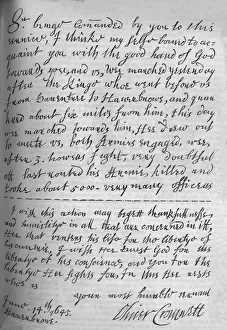 Sr beinge comanded by you to this
service, I thinke my selfe bound to ac-
quaint you with the good hand of God
towards you, and vs, Wee marched yesterday
after the Kinge whoe went before vs
from Dauentree to Haverbrowe, and quar-
tered about six miles from him, this day
wee marched towards him, Hee drew out
to meete vs, both Armies engaged, wee,
after 3. howers fight, very doubtfull
att last routed his Armie, killed and
tooke about 5000. very many officers
I wish this action may begett thankfullnesse,
and humilitye in all that are concerned in itt,
Hee that venters his life for the libertye of his
Countrie, I wish Hee trust God for the
libertye of his conscience, and you for the
libertye Hee fights for, In this Hee rests
whoe is
your most humble servant
Oliver Cromwell
June 14th. 1645.
Haverbrowe.